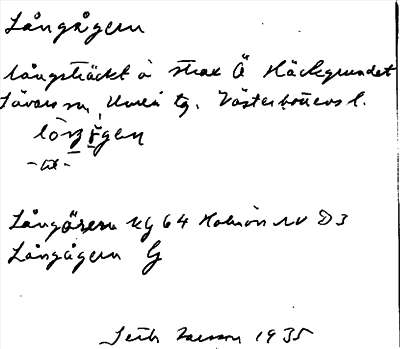 Långågern
långsträckt ö strax Ö Häckgrundet
Sävars sn, Umeå tg. Västerbottens l.
lòŋgen
Långören kg 64 Holmön NV D3
Långågern G
1935